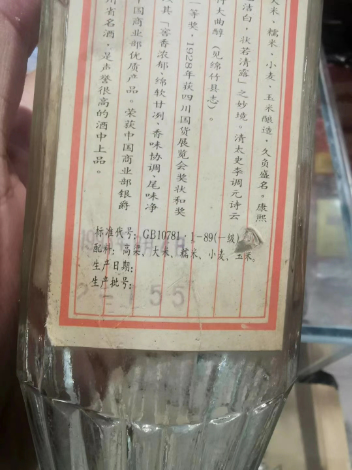 大米,糯米,小麦,玉米酿造,久负盛名。康熙
洁白,状若清露」之妙境。清太史李调元诗云
竹大曲醇(见绵竹县志)。
一等奖,1928年获四川国货展览会奖状和奖
其「窖香浓郁,绵软甘冽,香味协调,尾味净
中国商业部优质产品。荣获中国商业部银爵
川省名酒,是声誉很高的酒中上品。
标准代号:GB10781·1-89(一级)
配料:高粱、大米、糯米、小麦、玉米
生产日期:
生产批号:
55